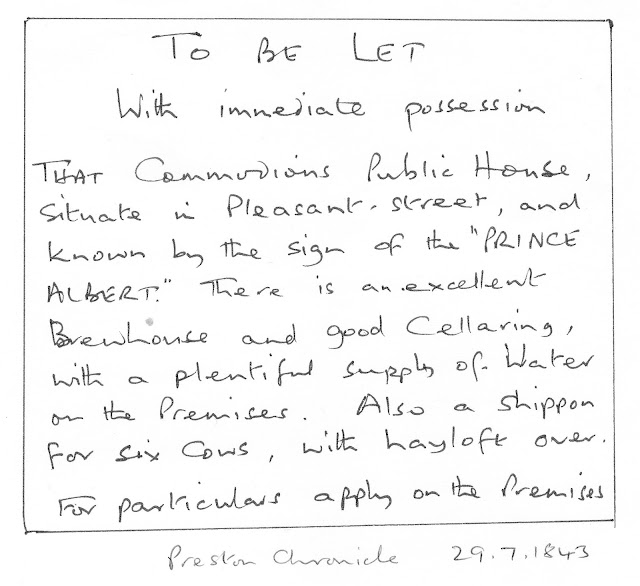 TO BE LET
With immediate possession
THAT Commodious Public House,
situate in Pleasant-street, and
known by the sign of the "PRINCE
ALBERT." There is an excellent
Brewhouse and good Cellaring,
with a plentiful supply of Water
on the Premises. Also a Shippon
for six Cows, with hayloft over.
For particulars apply on the Premises
Preston Chronicle 29.7.1843